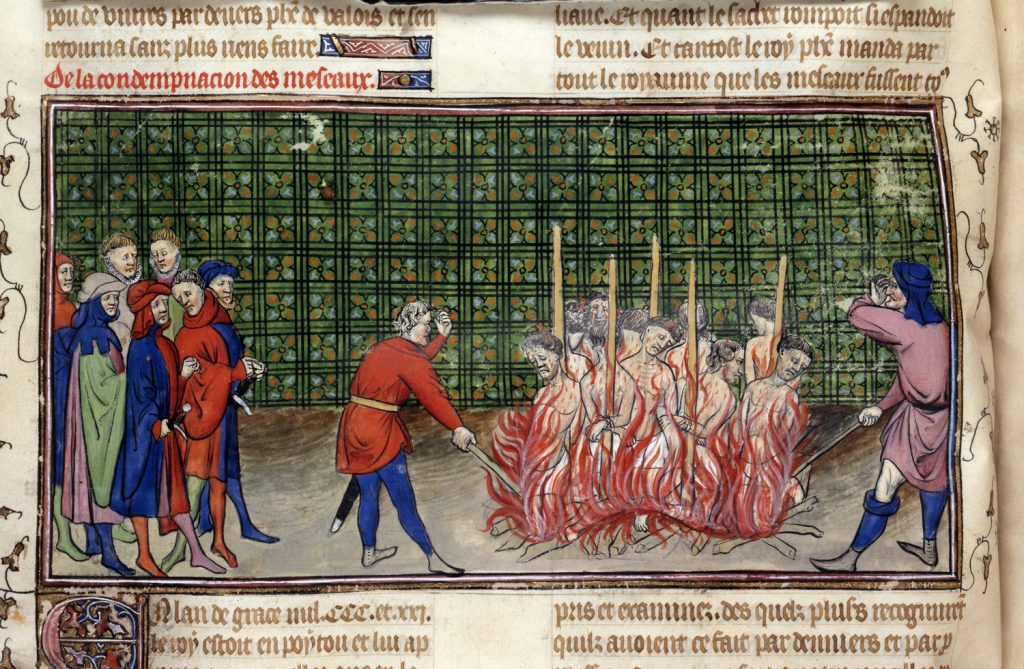 pou de viures par deuers phe de valois et sen
retourna sanz plus riens faire
De la condempnacion des meseaux.
En lan de grace mil. CCC. et. xxi.
le roy estoit en poytou et lui ap
liaue. Et quant le sachet rompoit si espandoit
le venin. Et tantost le roy phe manda par
tout le royaume que les meseaux fussent
pris et examinez. des quelz
quilz auoient ce fait par deniers et par